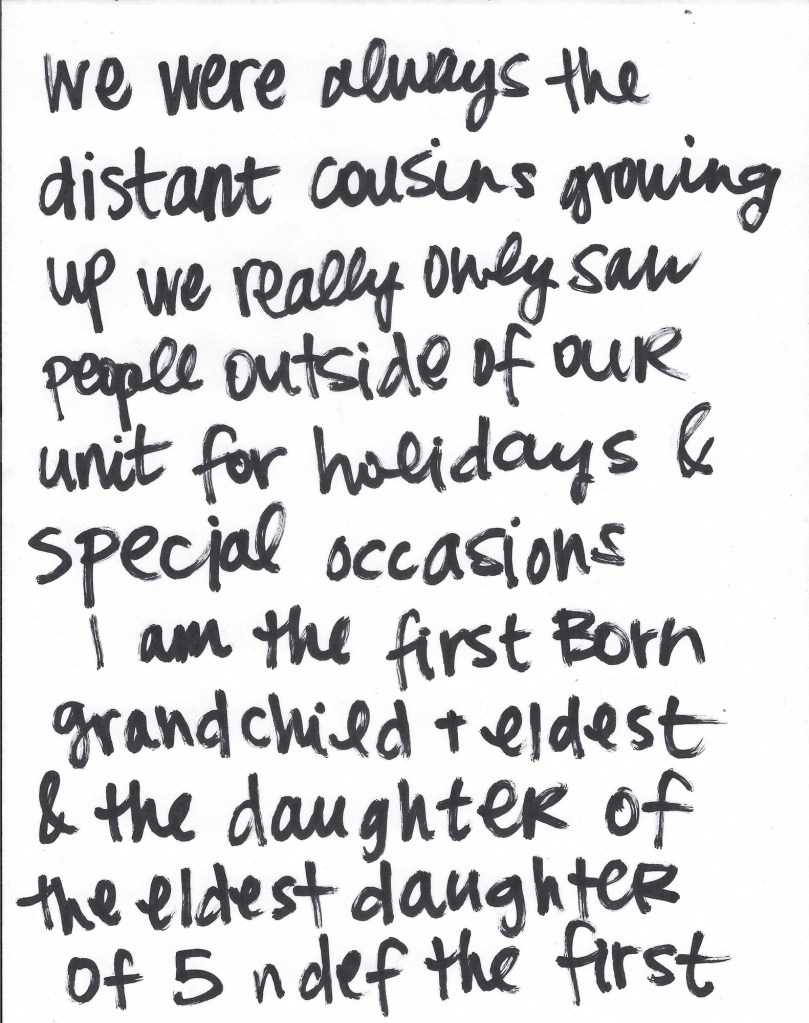 we were always the
distant cousins growing
up we really only saw
people outside of our
unit for holidays &
special occasions
I am the first Born
grandchild + eldest
& the daughter of
the eldest daughter
of 5 n def the first